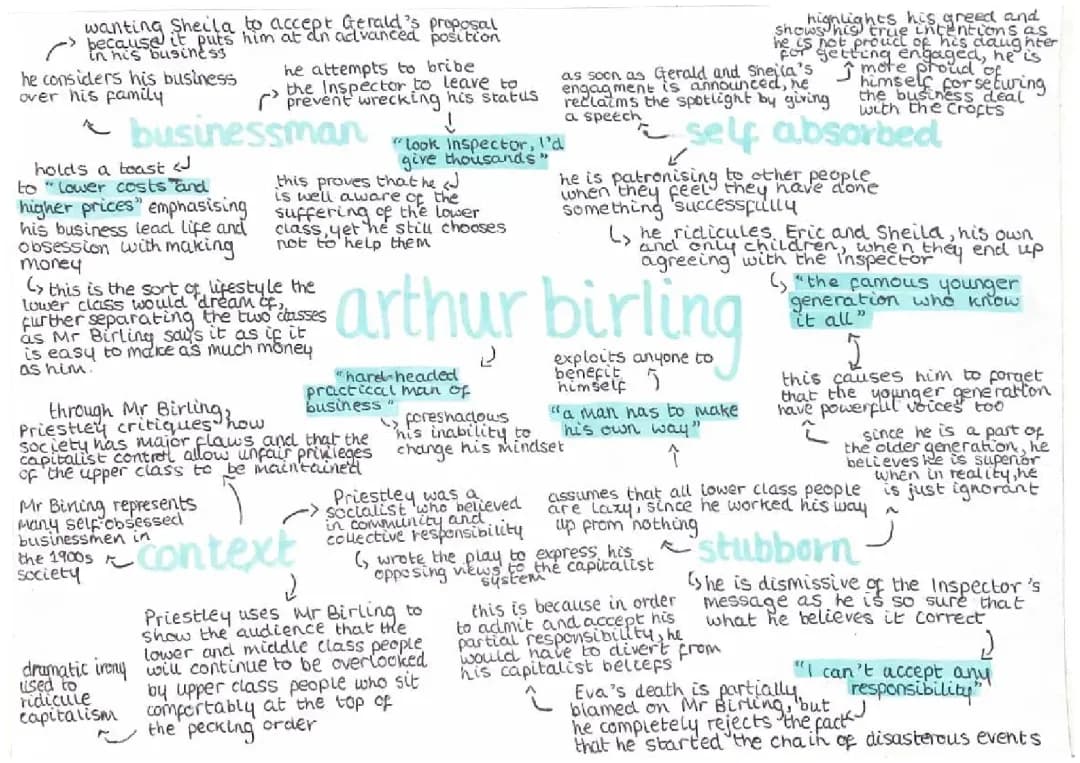 wanting Sheila to accept Gerald's proposal
because it puts him at an advanced position
in his business
he considers his business
over his family
businessman
he attempts to bribe
the Inspector to leave to
prevent wrecking his status
"look Inspector, I'd
give thousands"
this proves that he
is well aware of the
suffering of the lower
class, yet he still chooses
not to help them
holds a toast
to "lower costs and
higher prices" emphasising
his business lead life and
obsession with making
money
this is the sort of lifestyle the
lower class would dream of,
further separating the two classes
as Mr Birling says it as if it
is easy to make as much money
as him.
highlights his greed and
shows his true intentions as
he is not proud of his daughter
for getting engaged, he is
more proud of
himself for seturing
the business deal
with the Crofts
as soon as Gerald and Sheila's
engagment is announced, he
reclaims the spotlight by giving
a speech
self absorbed
he is patronising to other people
when they feel they have done
something successfully
he ridicules Eric and Sheila, his own
and only children, when they end up
agreeing with the Inspector
"the famous younger
generation who know
it all"
this causes him to forget
that the younger generation
have powerful voices too
since he is a part of
the older generation, he
believes he is superior
when in reality, he
is just ignorant
arthur birling
"hard-headed
practical man of
business"
foreshadows
his inability to
change his mindset
exploits anyone to
benefit
himself
"a man has to make
his own way"
assumes that all lower class people
are lazy, since he worked his way
up from nothing
stubborn
he is dismissive of the Inspector's
message as he is so sure that
what he believes it correct
"I can't accept any
responsibility"
Eva's death is partially
blamed on Mr Birling, but
he completely rejects the fact
that he started the chain of disasterous events
this is because in order
to admit and accept his
partial responsibility, he
would have to divert from
his capitalist beliefs
through Mr Birling,
Priestley critiques how
society has major flaws and that the
capitalist control allow unfair privileges
of the upper class to be maintained
Mr Birling represents
many self-obsessed
businessmen in
the 1900s
society
context
Priestley was a
socialist who believed
in community and
collective responsibility
wrote the play to express his
opposing views to the capitalist
system
Priestley uses Mr Birling to
show the audience that the
lower and middle class people
will continue to be overlooked
by upper class people who sit
comfortably at the top of
the pecking order
dramatic irony
used to
ridicule
capitalism